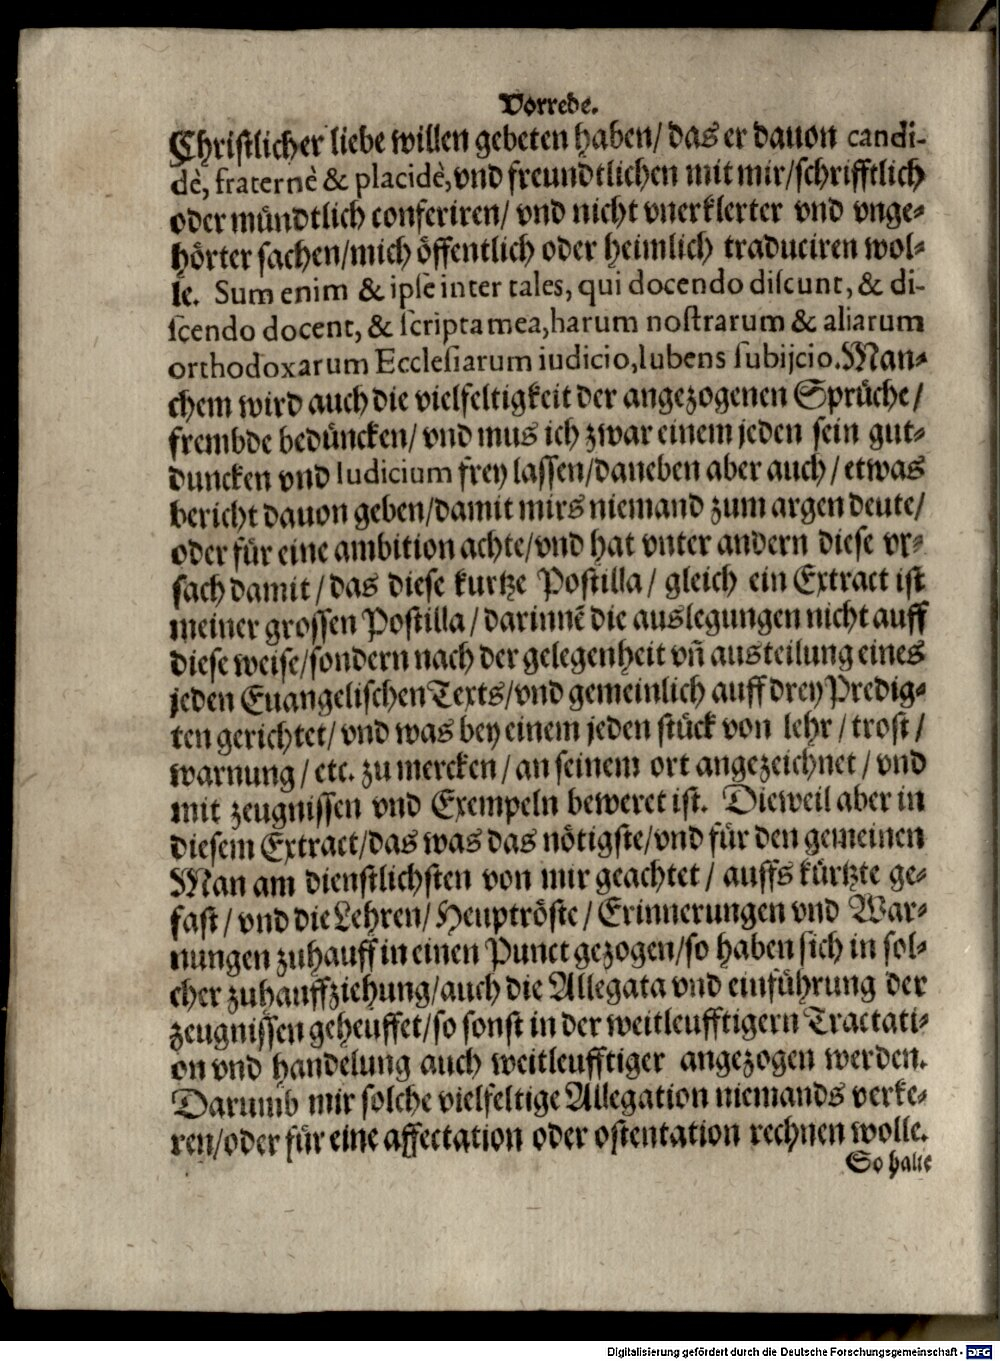 Vorrede.
Christlicher liebe willen gebeten haben/ das er dauon candi-
dè, fraternè & placidè, vnd freundtlichen mit mir/schrifftlich
oder mündtlich conferiren/ vnd nicht vnerklerter vnd vnge-
hörter sachen/mich öffentlich oder heimlich traduciren wol-
le. Sum enim & ipse inter tales, qui docendo discunt, & di-
scendo docent, & scripta mea, harum nostrarum & aliarum
orthodoxarum Ecclesiarum iudicio, lubens subijcio. Man-
chem wird auch die vielfeltigkeit der angezogenen Sprüche/
frembde bedüncken/ vnd mus ich zwar einem jeden sein gut-
duncken vnd Iudicium frey lassen/daneben aber auch/ etwas
bericht dauon geben/damit mirs niemand zum argen deute/
oder für eine ambition achte/vnd hat vnter andern diese vr-
sach damit/ das diese kurtze Postilla/ gleich ein Extract ist
meiner grossen Postilla/ darinnē die auslegungen nicht auff
diese weise/sondern nach der gelegenheit vñ austeilung eines
jeden Euangelischen Texts/vnd gemeinlich auff drey Predig-
ten gerichtet/ vnd was bey einem jeden stück von lehr/ trost/
warnung/ etc. zu mercken/ an seinem ort angezeichnet/ vnd
mit zeugnissen vnd Exempeln beweret ist. Dieweil aber in
diesem Extract/das was das nötigste/vnd für den gemeinen
Man am dienstlichsten von mir geachtet/ auffs kürtzte ge-
fast/ vnd die Lehren/ Heuptröste/ Erinnerungen vnd War-
nungen zuhauff in einen Punct gezogen/so haben sich in sol-
cher zuhauffziehung/auch die Allegata vnd einführung der
zeugnissen geheuffet/so sonst in der weitleufftigern Tractati-
on vnd handelung auch weitleufftiger angezogen werden.
Darumb mir solche vielfeltige Allegation niemands verke-
ren/oder für eine affectation oder ostentation rechnen wolle.
So halte
Digitalisierung gefördert durch die Deutsche Forschungsgemeinschaft - DFG